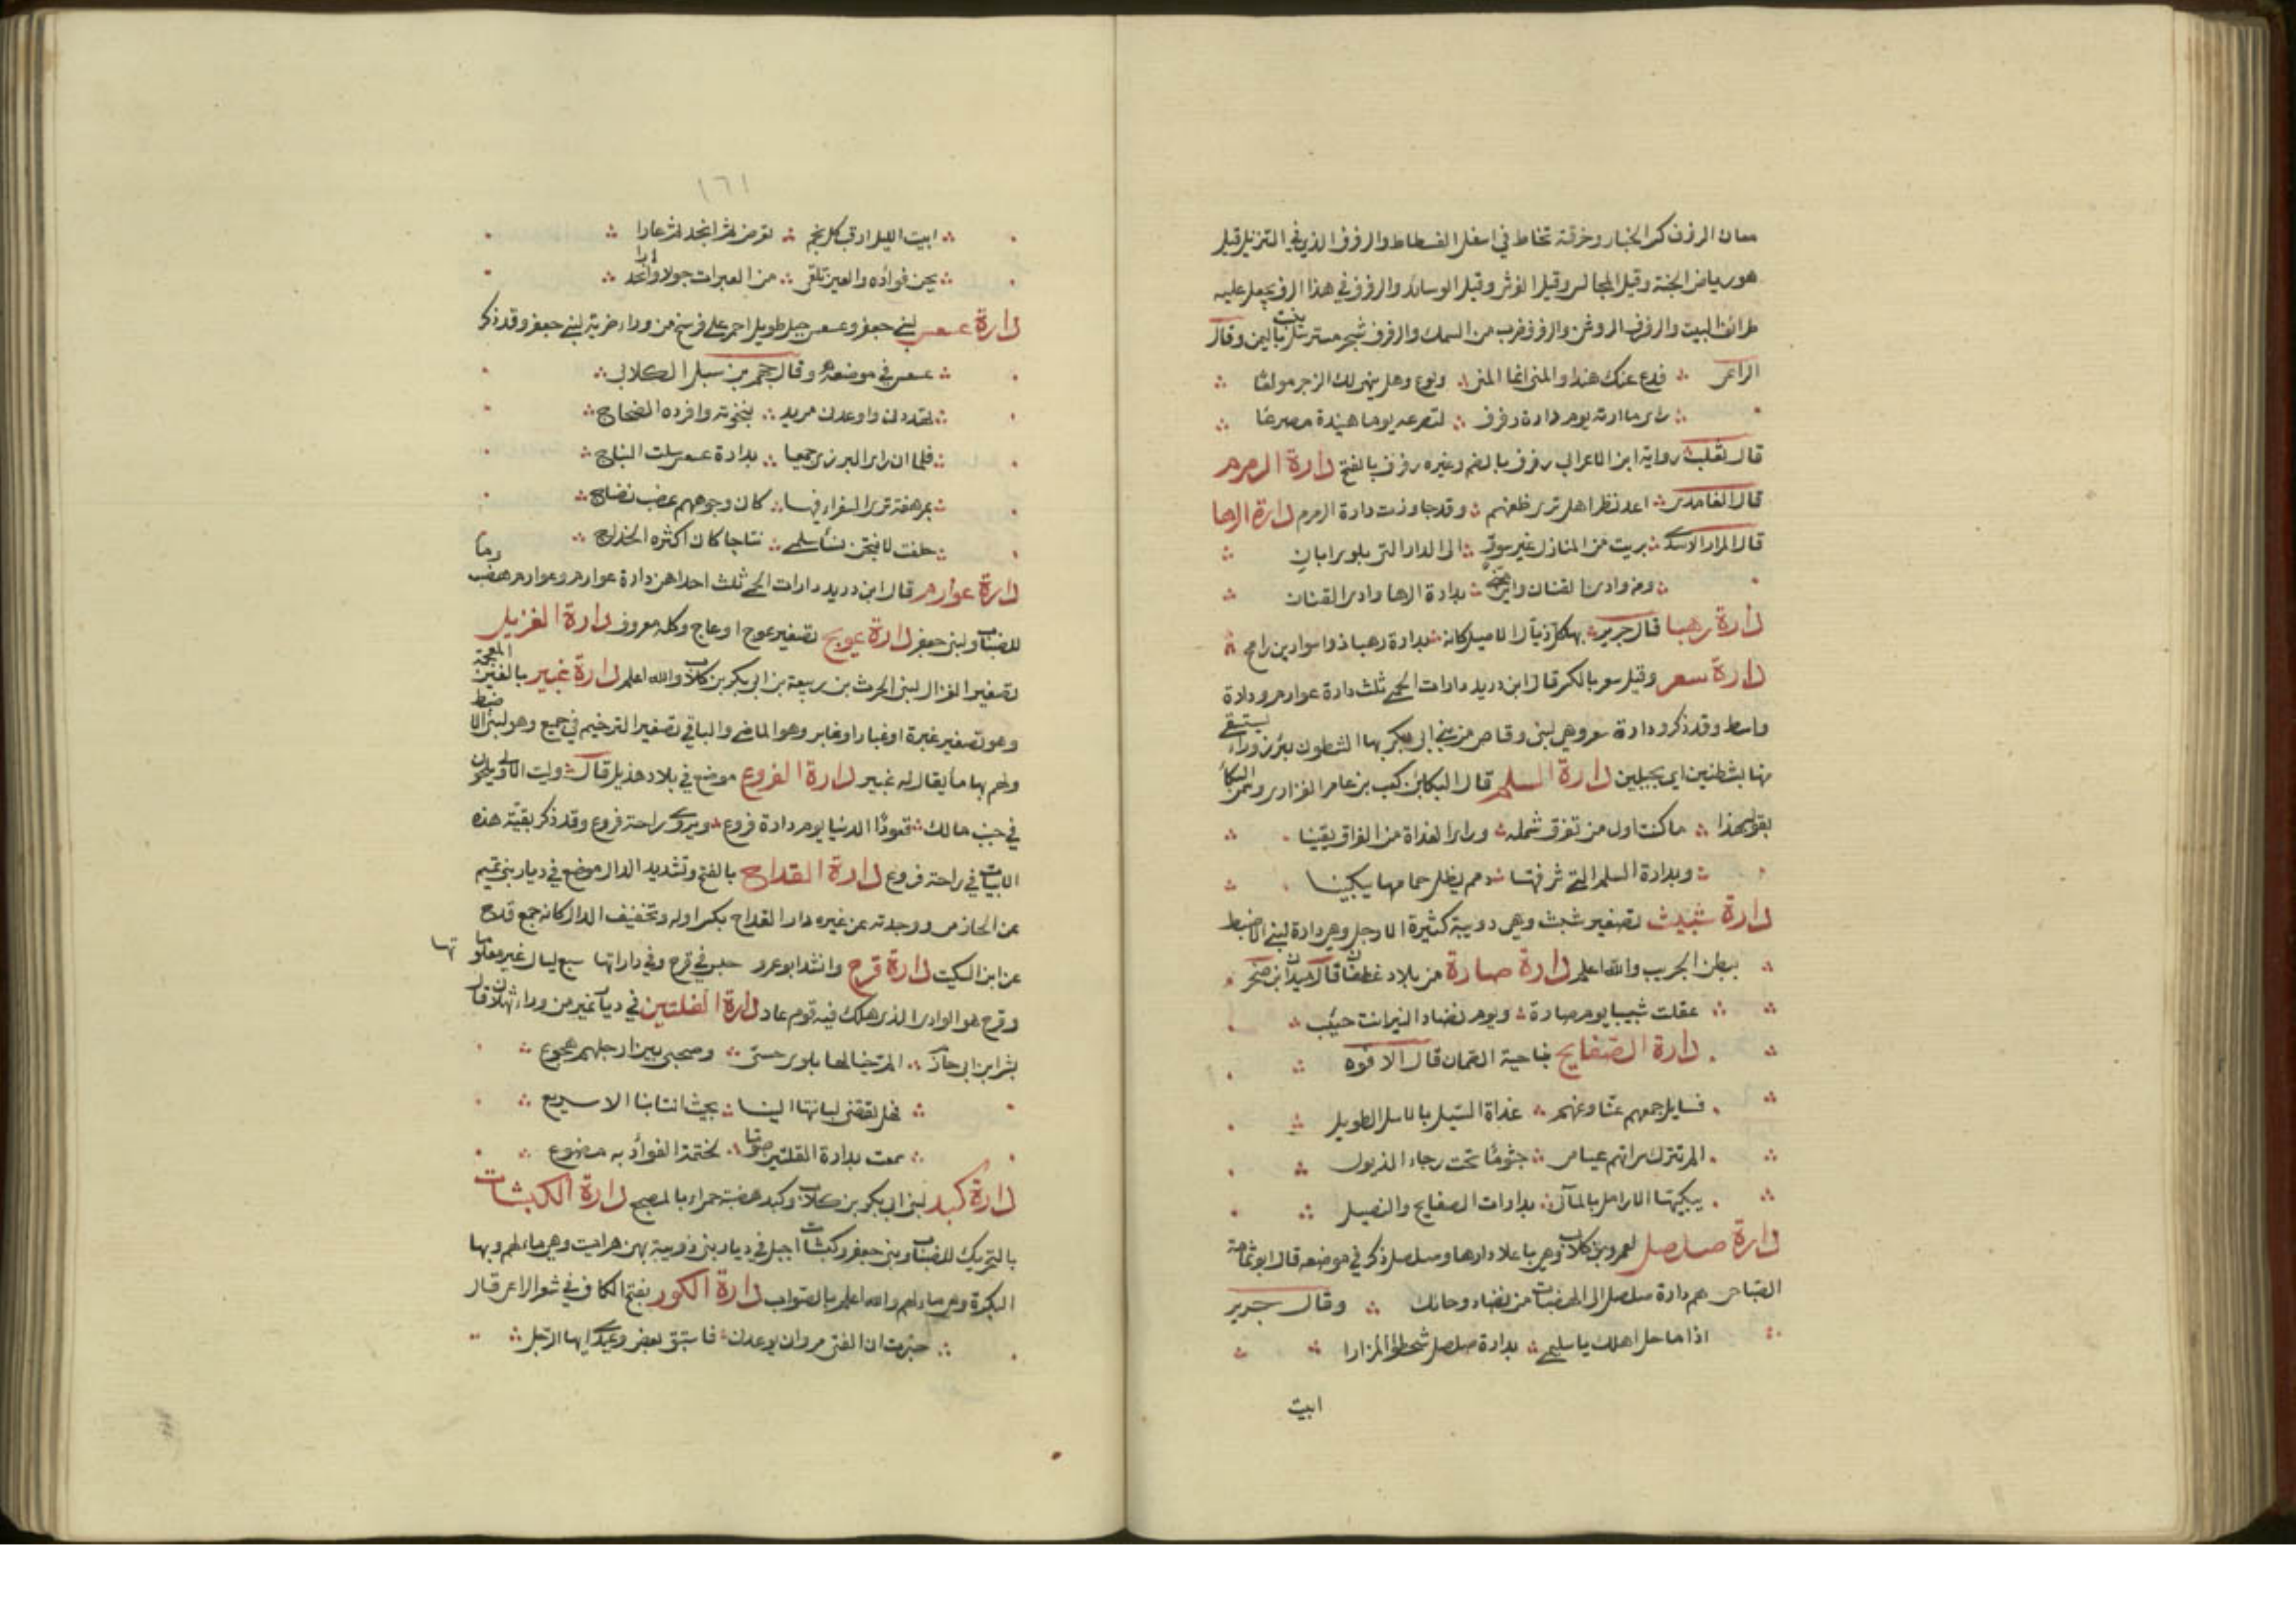 معان الرفرف كسر الخباء وخرقة تخاط في اسفل الفسطاط والرفرف الذي في التنزيل قيل
هو رياض الجنة وقيل المجالس وقيل الفرش وقيل الوسائد والرفرف في هذا الرف يجعل عليه
طرائف البيت والرفرف الروشن والرفرف ضرب من السمك والرفرف شجر مسترسل ينبت باليمن وقال
الراعي فدع عنك هندا والمنى انما المنى ولوع وهل ينهى لك الزجر مولعا
راى ما ارته يوم دارة رفرف لتصرعه يوما هنيدة مصرعا
قال ثعلب رواية ابن الاعرابي رفرف بالضم وغيره رفرف بالفتح دارة الرمرم
قال الغامدي اعد نظرا هل ترى ظعنهم وقد جاوزت دارة الرمرم دارة الرها
قال المرار الاسدي بريت من المنازل غير سوق الى الدار التي بلوى ابان
ومن وادي القنان واين بدارة الرها وادي القنان
دارة رهبا قال جرير بها كل ذيال الاصيل كانه بدارة رهبا ذوا سوارين رامح
دارة سعر وقيل سعر بالكسر قال ابن دريد دارات الحمى ثلث دارة عوارم ودارة
واسط وقد ذكر ودارة سعر وهي لبني وقاص من بني ابي بكر بها الشطون بئر زوراء يستقى
منها بشطنين اي بحبلين دارة السلم قال البكاء بن كعب بن عامر الفزاري وسمي البكاء
بقوله هذا ما كنت اول من تفرق شمله وراى الغداة من الفراق يقينا
وبدارة السلم التي شرفتها دمن يظل حمامها يبكينا
دارة شبيث تصغير شبث وهي دويبة كثيرة الارجل وهي دارة لبني الاضبط
ببطن الجريب والله اعلم دارة صارة من بلاد غطفان قال ميدان بن صخر
عقلت شبيبا يوم صارة ويوم نضاد النير انت جنيب
دارة الصفايح بناحية الصمان قال الافوه
فسايل جمعهم عنا وعنهم غداة السيل بالاسل الطويل
الم نترك سراتهم عيامى جثوما تحت رجاء الذيول
يبكيها الارامل بالمآلى بدارات الصفايح والنصيل
دارة صلصل لعمرو بن كلاب وهي باعلا دارها وصلصل ذكر في موضعه قال ابو ثمامة
الصباحي هم دارة صلصل الى الهضبات من نضاد وحائك وقال جرير
اذا ما حل اهلك يا سليمى بدارة صلصل شحطوا المزارا
ابيت
١٦١
ابيت الليل ارقب كل نجم تعرض ثم انجد ثم غارا
يحن فؤاده والعين تلقى من العبرات جولا وانحدارا
دارة عسعس لبني جعفر وعسعس جبل طويل احمر على فرسخ من وراء ضرية لبني جعفر وقد ذكر
عسعس في موضعه وقال جهم بن سبل الكلابي
تهددني واوعدني مريد بنخوته وافرده الضجاج
فلما ان راى البزرى جميعا بدارة عسعس سكت النباج
بمرهفة ترى السفراء فيها كان وجوههم عصب نضاج
حلفت لانتجن نساء سلمى نتاجا كان اكثره الخداج
دارة عوارم قال ابن دريد دارات الحمى ثلث احداهن دارة عوارم وعوارم هضب وماء
للضباب ولبني جعفر دارة عويج تصغير عوج او عاج وكله معروف دارة الغزيل
تصغير الغزال لبني الحرث بن ربيعة بن ابي بكر بن كلاب والله اعلم دارة غبير بالغين المعجمة
وهو تصغير غبرة او غبار او غابر وهو الماضي والباقي تصغير الترخيم في جميع وهو لبني الاضبط
ولهم بها ماء يقال له غبير دارة الفروع موضع في بلاد هذيل قال رايت الالى يلحون
في جنب مالك قعودا الدنيا يوم دارة فروع ويروى راحة فروع وقد ذكر بقية هذه
الابيات في راحة فروع دارة القداح بالفتح وتشديد الدال موضع في ديار بني تميم
عن الحازمي ووجدته عن غيره دار القداح بكسر اوله وتخفيف الدال كانه جمع قدح
عن ابن السكيت دارة قرح وانشد ابو عمرو حبسن في قرح وفي داراتها سبع ليال غير معلوفاتها
وقرح هو الوادي الذي هلك فيه قوم عاد دارة القلتين في ديار نمير من وراء ثهلان قال
بشر ابن ابي حازم الم ترخيالها بلوى حسي وصحبي بين ارجلهم هجوع
فهل تقضي لبانتها الينا بحيث انتابنا الا سريع
سمعت بدارة القلتين صوتا لحنتمة الفواد به مضوع
دارة كبد لبني ابي بكر بن كلاب وكبد هضبة حمراء بالمضجع دارة الكبشات
بالتحريك للضباب وبني جعفر وكبشات اجبل في ديار بني ذويبة بهن هراميت وهي ماء لهم وبها
البكرة وهي ماء لهم والله اعلم بالصواب دارة الكور بفتح الكاف في شعر الراعي قال
خبرت ان الفتى مروان يوعدني فاستبق بعض وعيدي ايها الرجل